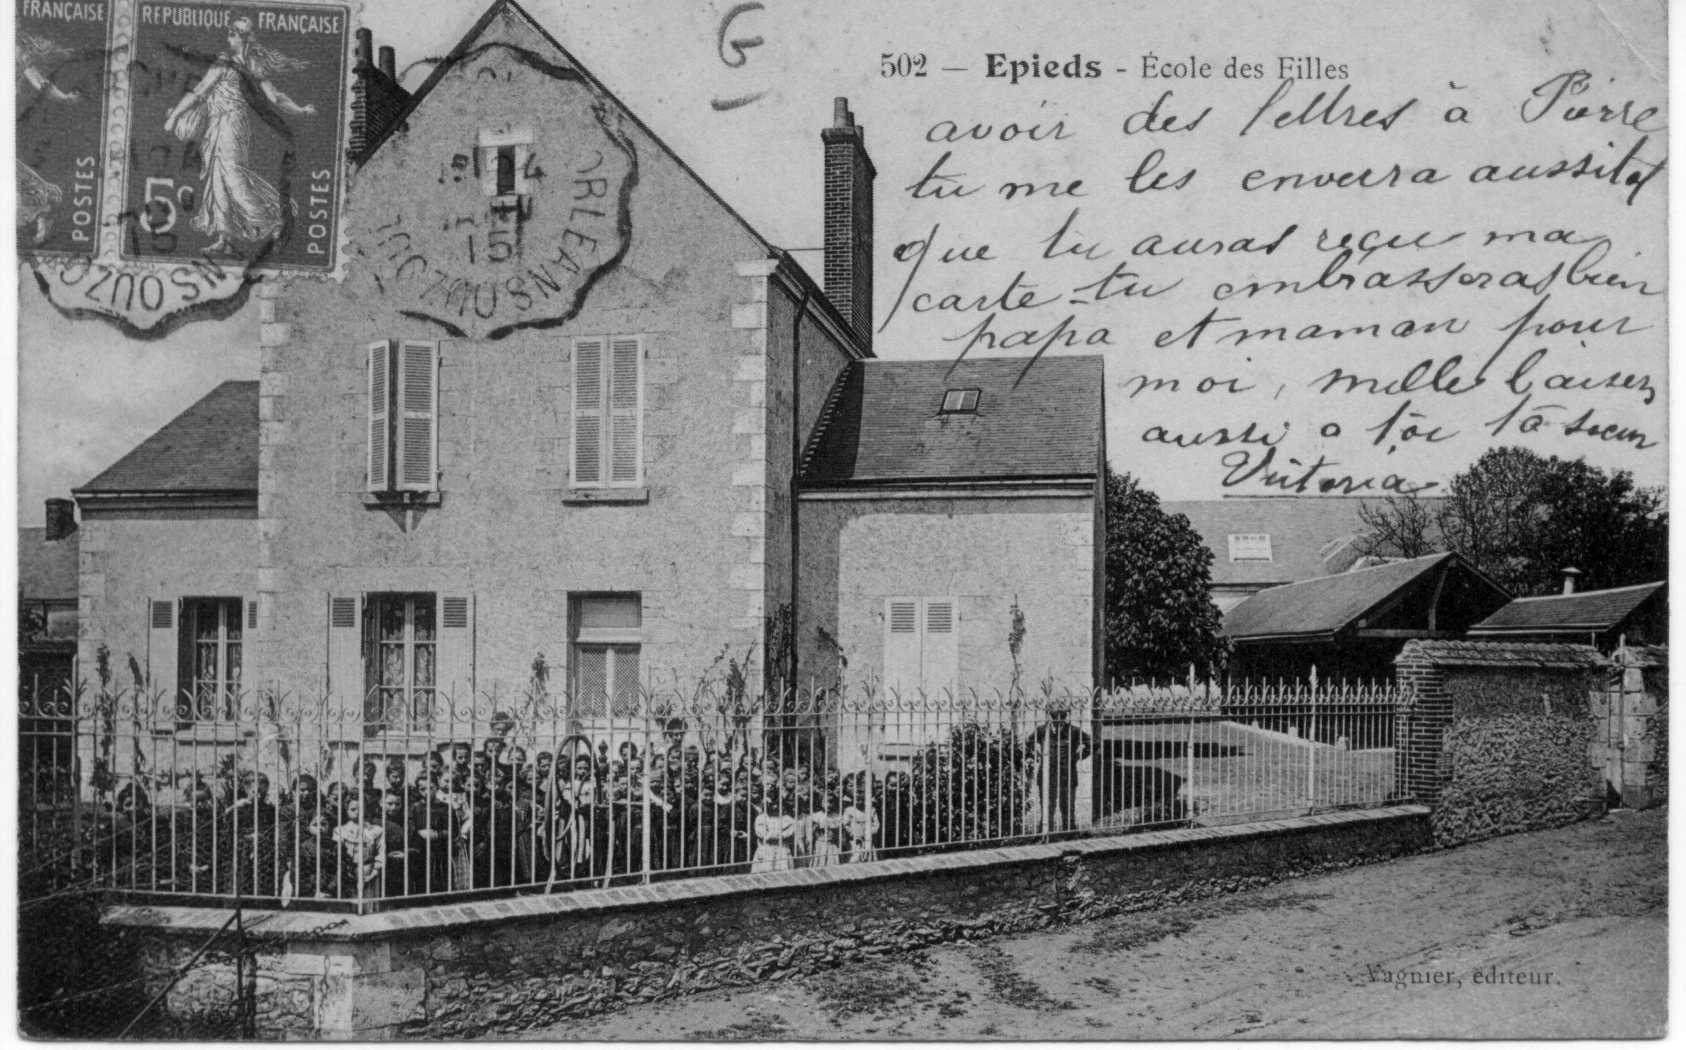 FRANÇAISE
POSTES
RÉPUBLIQUE FRANÇAISE
5c
POSTES
G
502 — Epieds - École des Filles
avoir des lettres à Pierre
tu me les enverra aussitot
que tu auras reçu ma
carte - tu embrasseras bien
papa et maman pour
moi, mille baisers
aussi a toi ta soeur
Victoria
ORLEANS OUZOU
15
NS OUZO
15
Vagnier, éditeur.